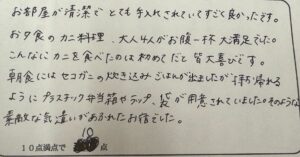 お部屋が清潔で とても手入れされていてすごく良かったです。
お夕食のカニ料理、大人4人がお腹一杯 大満足でした。
こんなにカニを食べたのは初めてだと 皆大喜びです。
朝食にはセコガニの炊き込みごはんが出ましたが持ち帰れる
ようにプラスチック弁当箱やラップ、袋が用意されていました。そのような
素敵な気遣いがあふれたお宿でした。
10点満点で 10 点